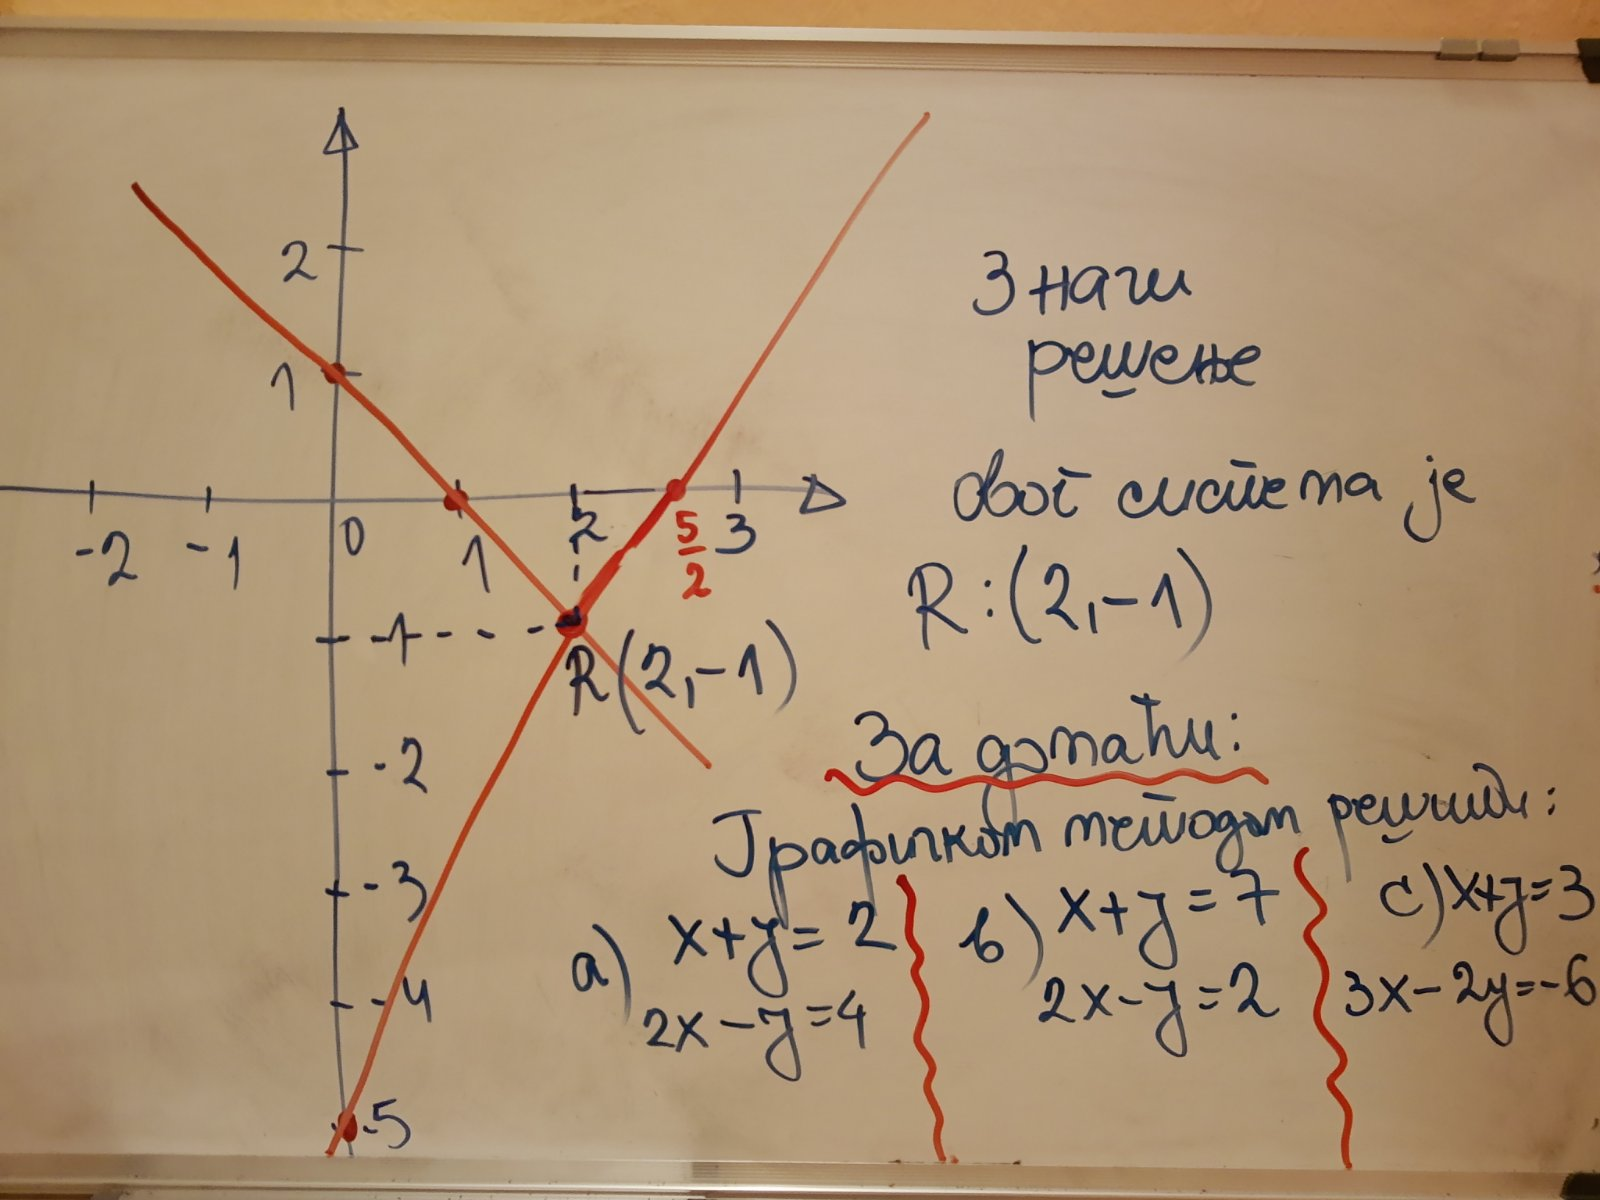 2
1
-2 -1 0 1 2 5/2 3
-1
R(2,-1)
-2
-3
-4
-5
Значи
решење
овог система је
R:(2,-1)
За домаћи:
Графичком методом решити:
а) x+y=2
2x-y=4
в) x+y=7
2x-y=2
c) x+y=3
3x-2y=-6